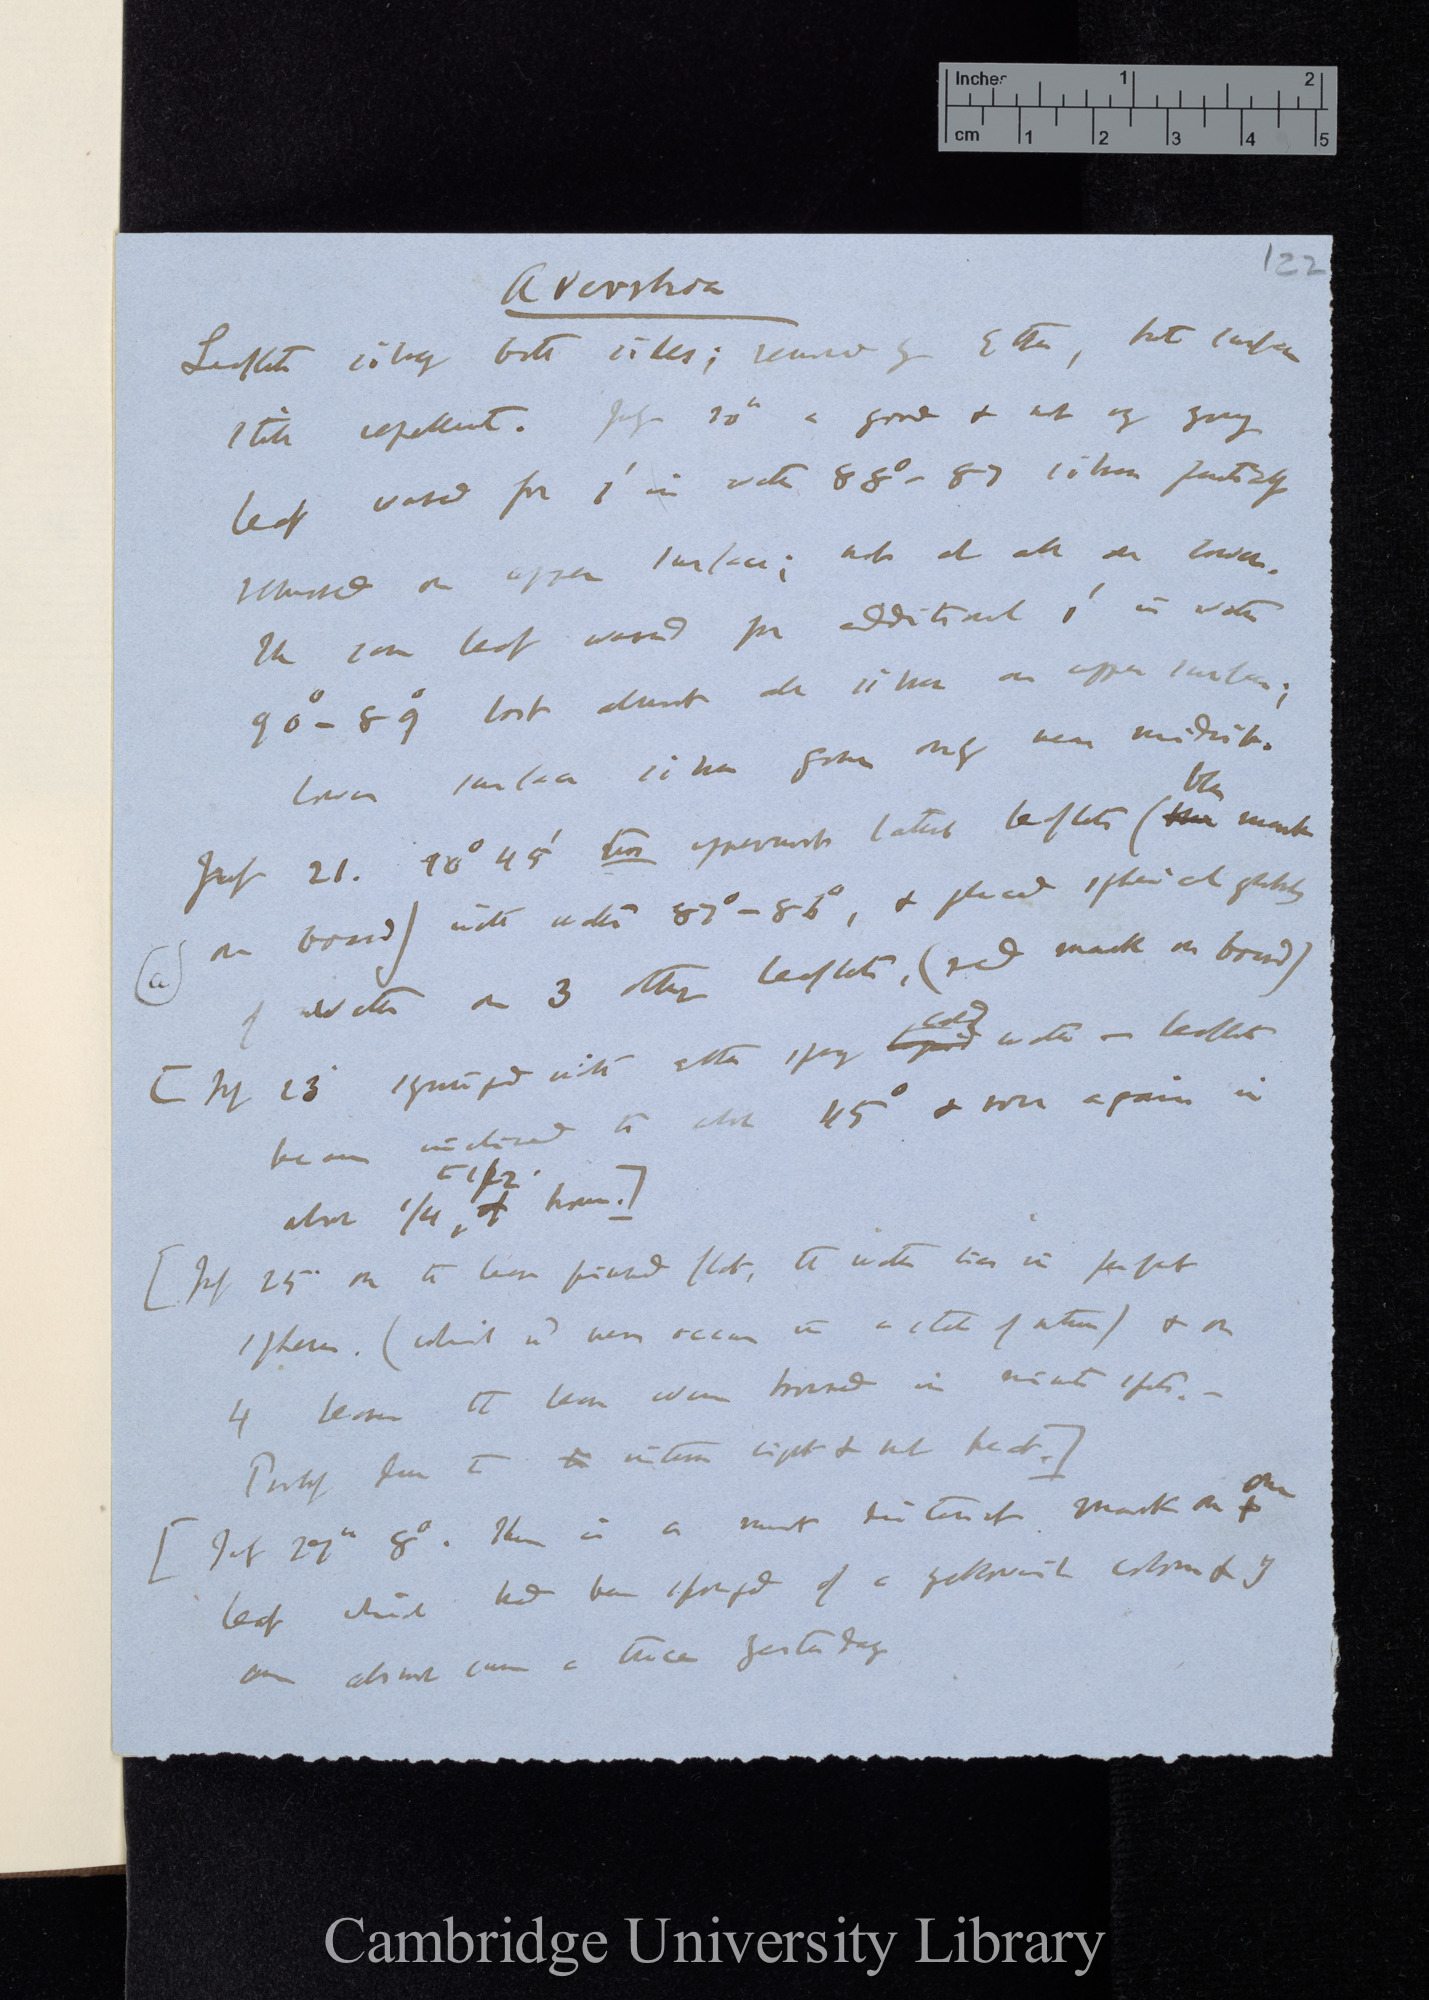 Inches 1 2
cm 1 2 3 4 5
122
Averrhoa
Leaflets silvery both sides; removed by Ether, but surface
still repellent. July 20th a good & not very young
leaf waved for 1' in water 88°-87 silver partially
removed on upper surface; not at all on lower.
The same leaf waved for additional 1' in water
90°-89° lost almost all silver on upper surface;
lower surface silver gone only near midrib.
blue
July 21. 10° 45' two uppermost lateral leaflets (blue mark
on board) with water 87°-86°, & placed spherical globules
(a)
of water on 3 other leaflets, (red mark on board)
cold
[July 23 syringed with water liquid water — leaflets
became inclined to about 45° & rose again in
to 1/2
about 1/4 of hour.]
[July 25 on the leaves pinned flat, the water lies in perfect
spheres. (which wd never occur in a state of nature) & on
4 leaves the leaves were browned in minute spots. —
Partly due to to intense light & not heat.]
one
[July 27th 8°. There is a most distinct mark on
leaf which had been sponged of a yellowish colour & I
am almost sure a trace yesterday
Cambridge University Library